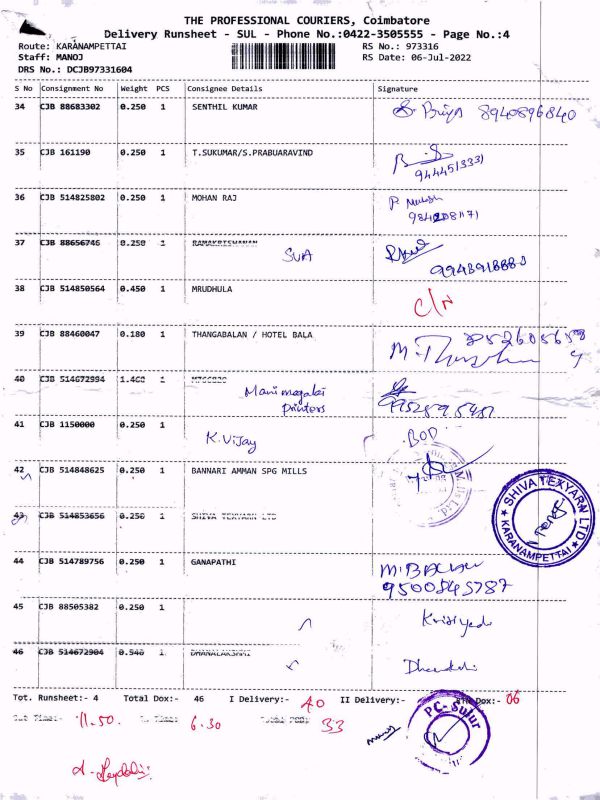 THE PROFESSIONAL COURIERS, Coimbatore
Delivery Runsheet - SUL - Phone No.:0422-3505555 - Page No.:4
Route: KARANAMPETTAI RS No.: 973316
Staff: MANOJ RS Date: 06-Jul-2022
DRS No.: DCJB97331604
S No Consignment No Weight PCS Consignee Details Signature
34 CJB 88683302 0.250 1 SENTHIL KUMAR S. Priya 8940896840
35 CJB 161190 0.250 1 T.SUKUMAR/S.PRABUARAVIND
9444513331
36 CJB 514825802 0.250 1 MOHAN RAJ
37 CJB 88656746 0.250 1 RAMAKRISHANAN
SUA 9943918883
38 CJB 514850564 0.450 1 MRUDHULA C/N
39 CJB 88460047 0.180 1 THANGABALAN / HOTEL BALA
40 CJB 514672994 1.460 1
Manimegalai
Printers
41 CJB 1150000 0.250 1
K. Vijay BOD
42 CJB 514848625 0.250 1 BANNARI AMMAN SPG MILLS
SHIVA TEXYARN LTD
KARANAMPETTAI
43 CJB 514853656 0.250 1 SHIVA TEXYARN LTD
44 CJB 514789756 0.250 1 GANAPATHI
9500845787
45 CJB 88505382 0.250 1
46 CJB 514672904 0.540 1 DHANALAKSHMI
Tot. Runsheet:- 4 Total Dox:- 46 I Delivery:- 40 II Delivery:- Dox:- 06
11.50. 6.30 33
PC-Sulur